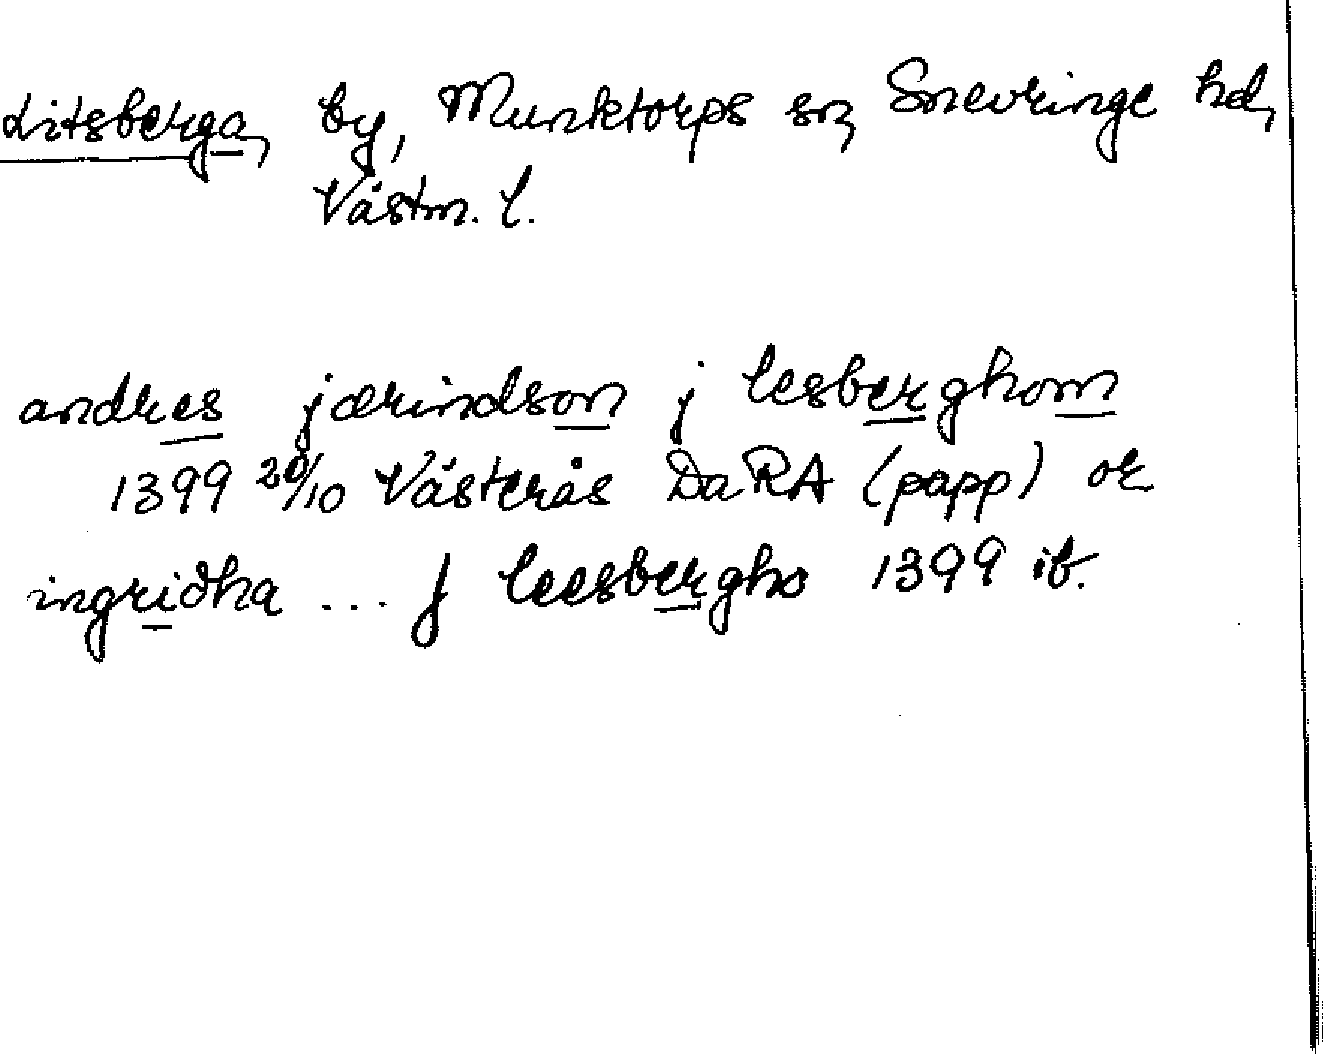 Litsberga, by, Munktorps sn, Snevringe hd,
Västm. l.
andres jærindson j lesberghom
1399 20/10 Västerås DaRA (papp) or
ingridha ... j leesbergho 1399 ib.